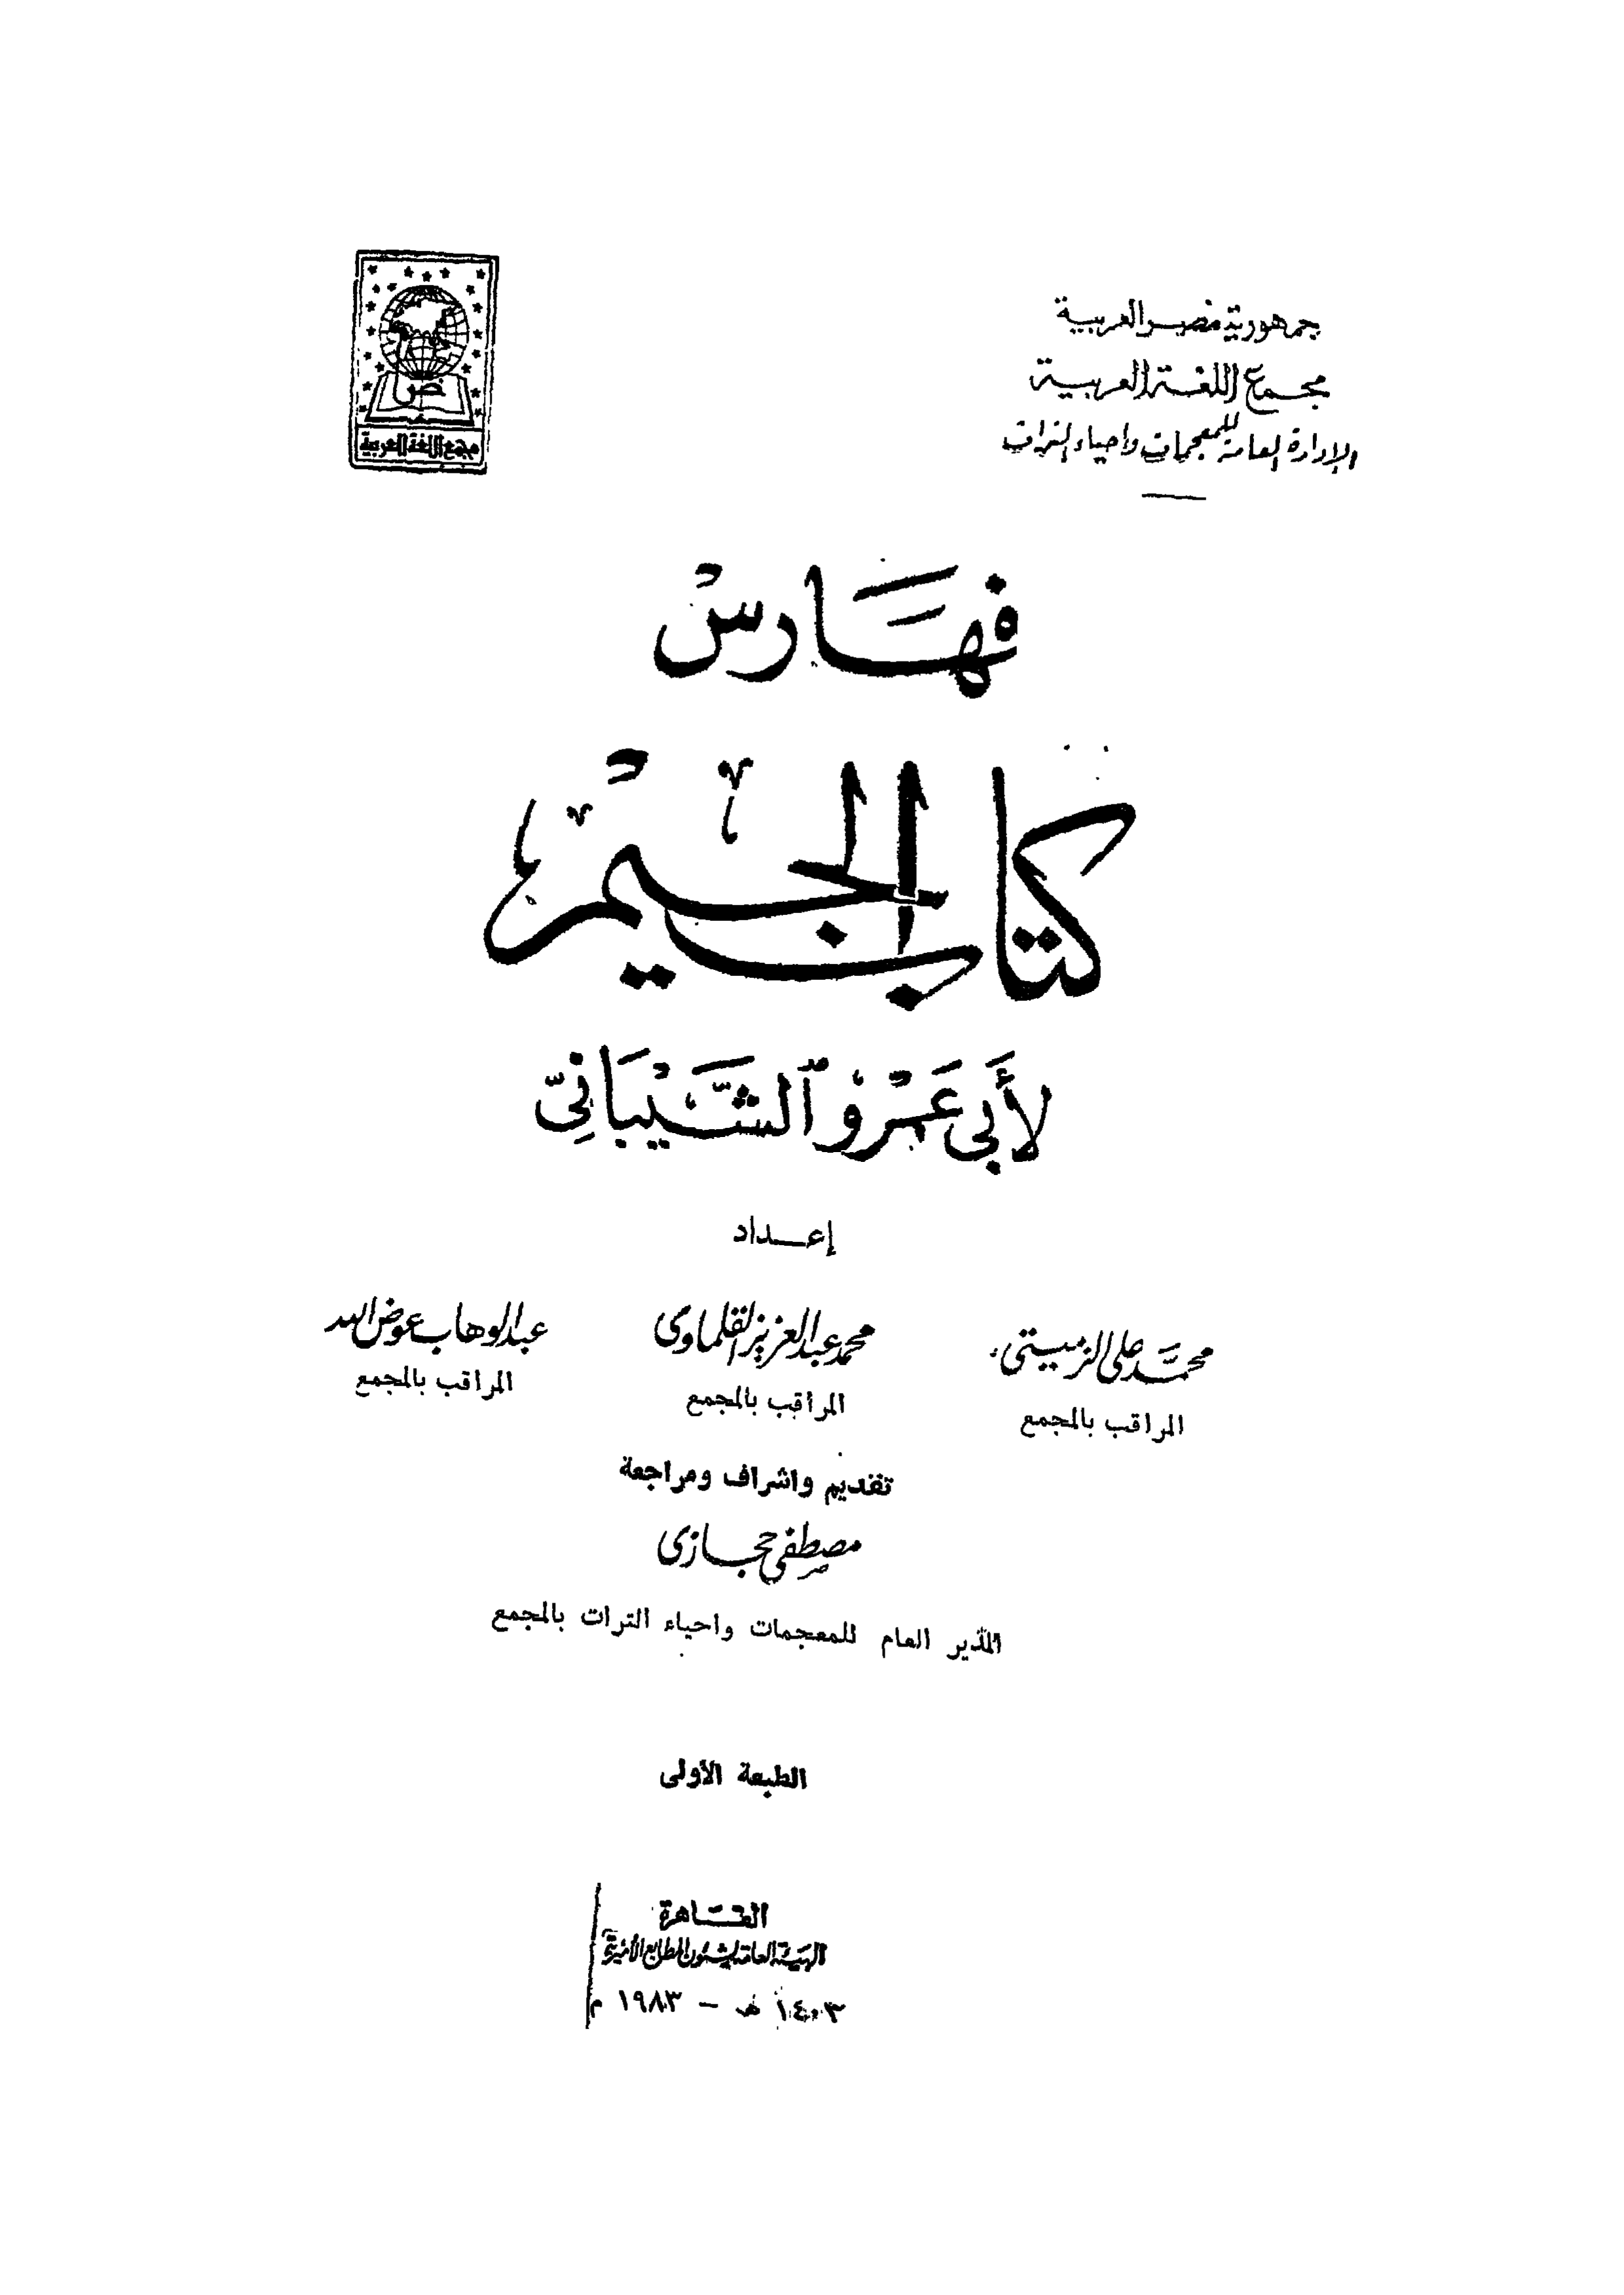 جمهورية مصر العربية
مجمع اللغة العربية
الإدارة العامة للمعجمات واحياء التراث
ض
مجمع اللغة العربية
فهَارسْ
كتاب الجيمْ
لأَبى عَمْرو ٱلشَّيْبَانِىّ
إعـداد
محمَّد على الزميتى
المراقب بالمجمع
محمد عبد العزيز القلماوى
المراقب بالمجمع
عبد الوهاب عوض الله
المراقب بالمجمع
تقديم واشراف ومراجعة
مصطفى حجازى
المدير العام للمعجمات واحياء التراث بالمجمع
الطبعة الأولى
القاهرة
الهيئة العامة لشئون المطابع الأميرية
١٤٠٣ هـ - ١٩٨٣ م